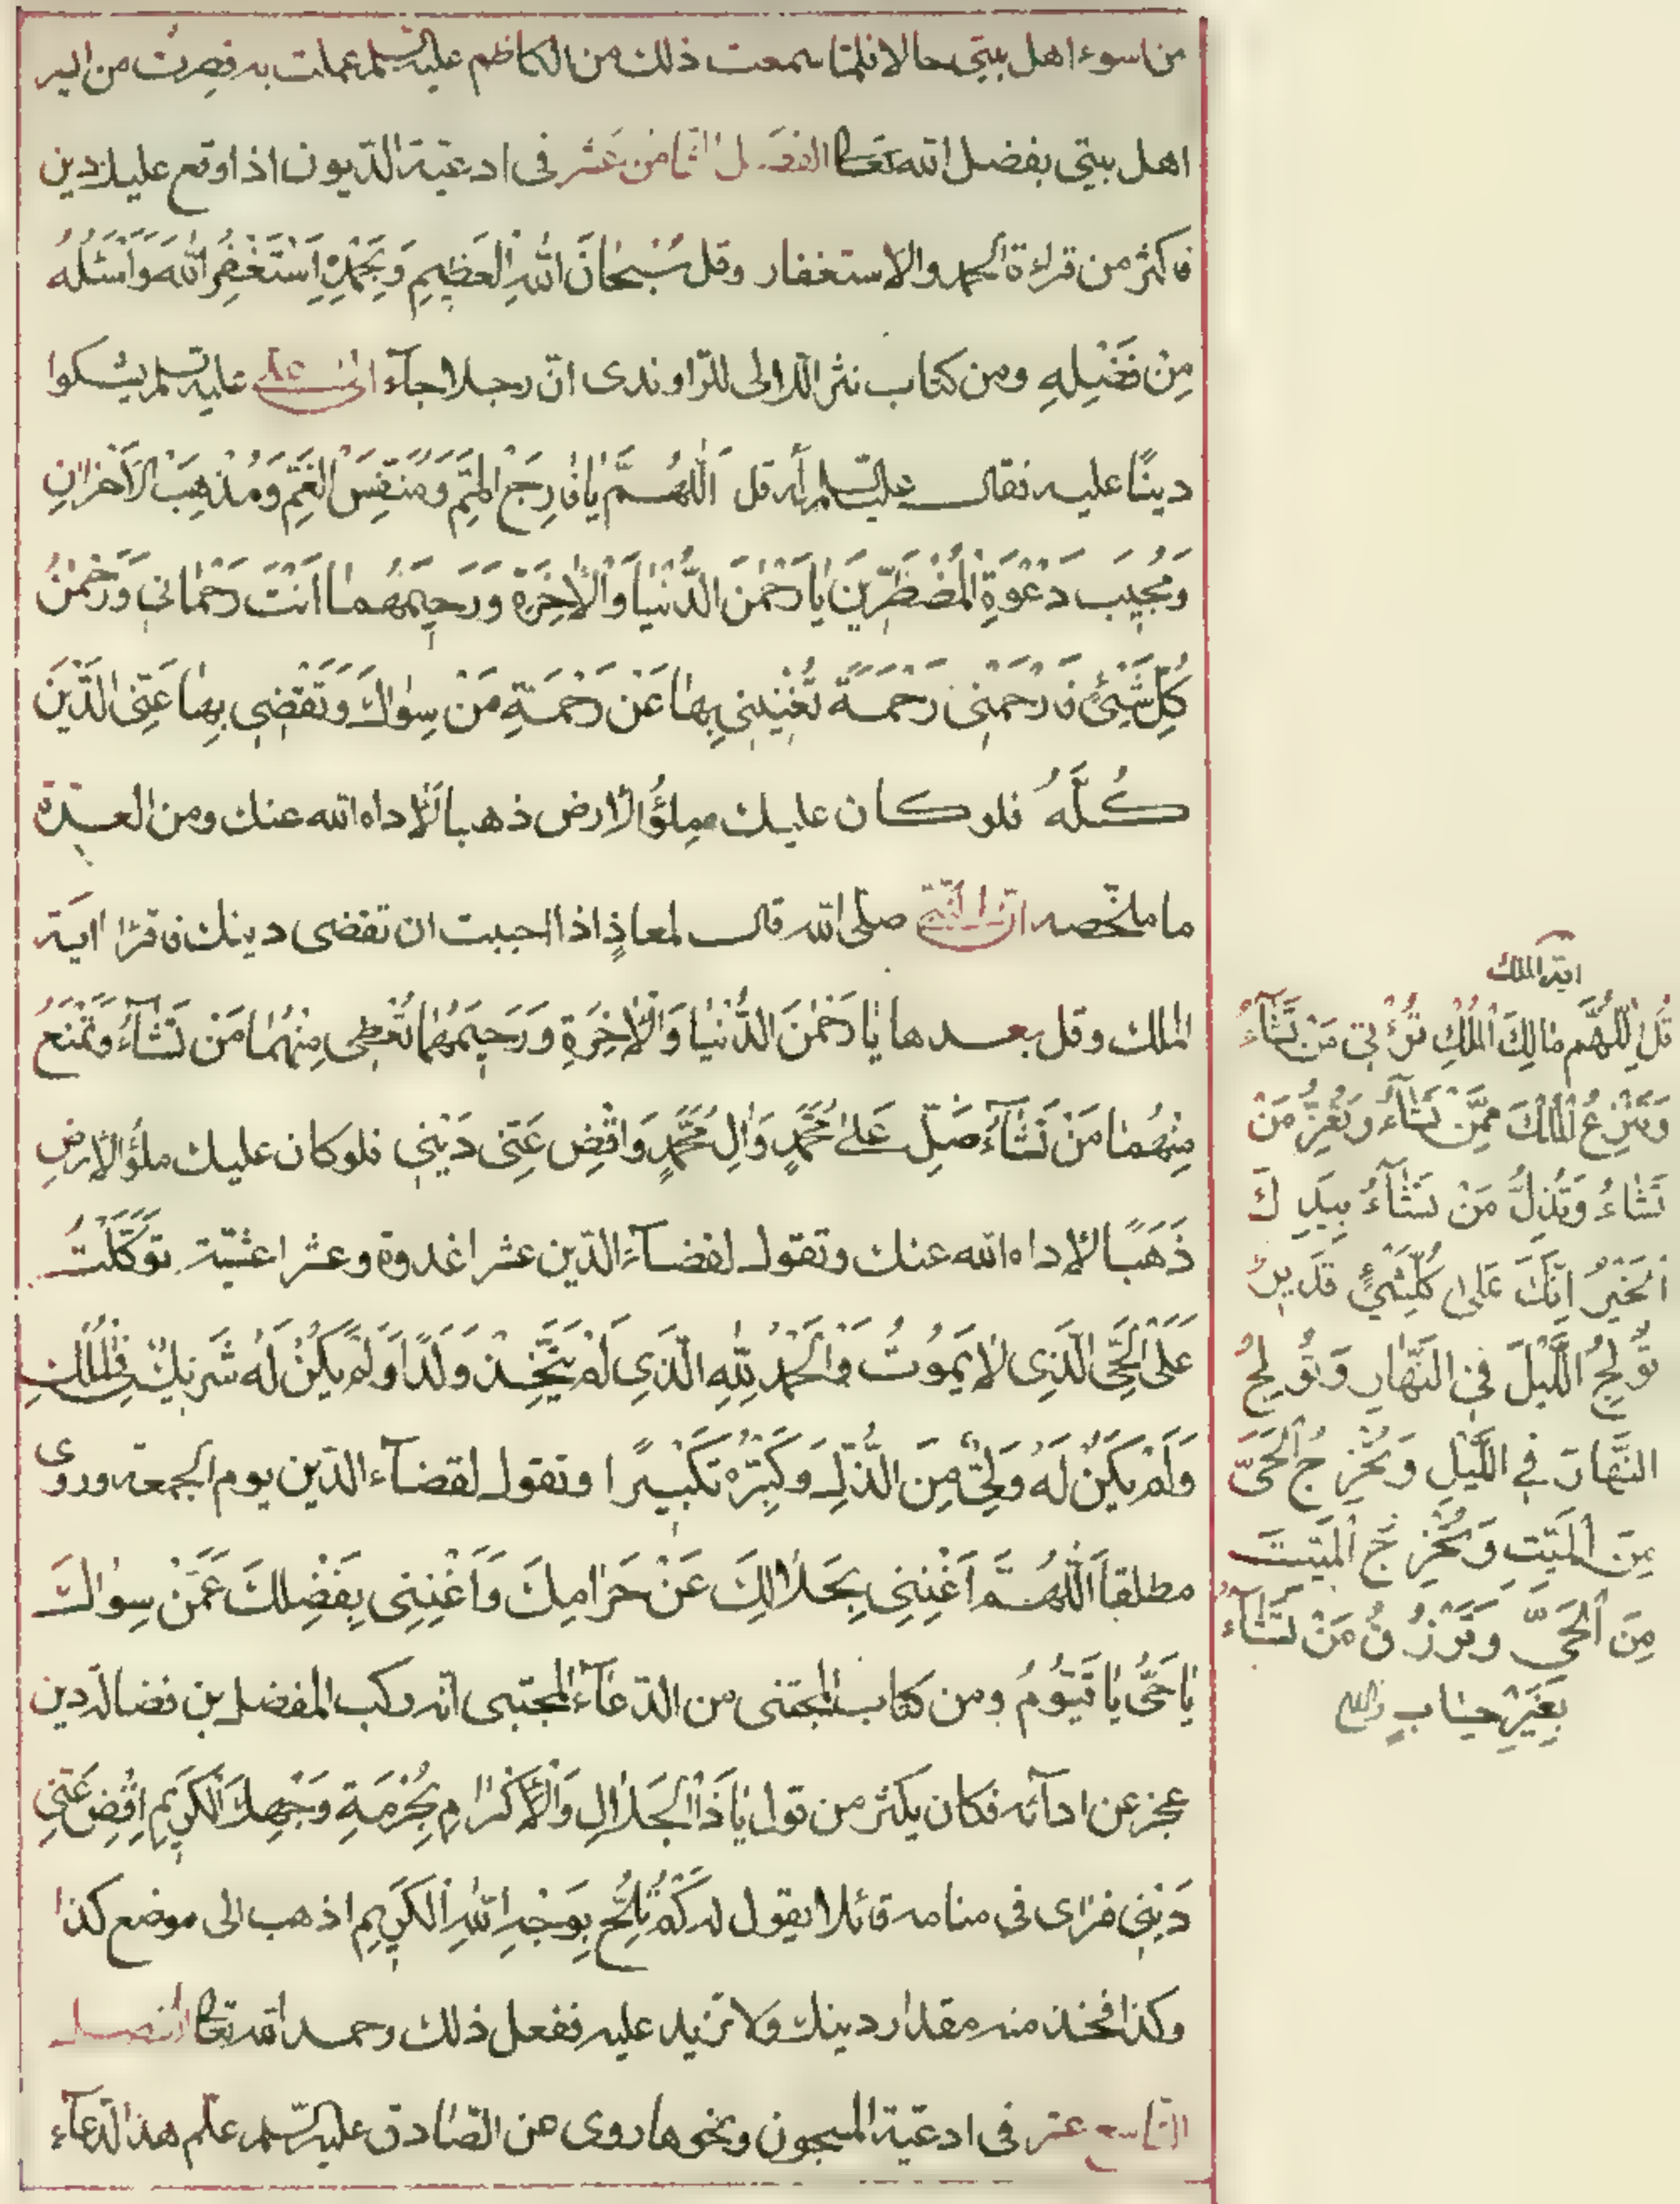 من اسوء اهل بيتى حالا فلمّا سمعت ذلك من الكاظم عليه السلم عملت به فصرت من ايسر
اهل بيتى بفضل الله تعالى الفصل الثامن عشر فى ادعية الدّيون اذا وقع عليك دين
فاكثر من قراءة الحمد والاستغفار وقل سُبْحٰانَ اللهِ الْعَظِيمِ وَبِحَمْدِهِ اَسْتَغْفِرُ اللهَ وَاَسْئَلُهُ
مِنْ فَضْلِهِ ومن كتاب نثر اللّالى للرّاوندى انّ رجلا جآء الى عليه السلم يشكوا
دينًا عليه فقال عليه السلم له قل اَللّٰهُمَّ يٰا فٰارِجَ الْهَمِّ وَمُنَفِّسَ الْغَمِّ وَمُذْهِبَ الْاَحْزٰانِ
وَمُجِيبَ دَعْوَةِ الْمُضْطَرِّينَ يٰا رَحْمٰنَ الدُّنْيٰا وَالْاٰخِرَةِ وَرَحِيمَهُمٰا اَنْتَ رَحْمٰانِي وَرَحْمٰنُ
كُلِّ شَيْئٍ فَارْحَمْنِى رَحْمَةً تُغْنِينِي بِهٰا عَنْ رَحْمَةِ مَنْ سِوٰاكَ وَتَقْضِي بِهٰا عَنِّى الدَّيْنَ
كُلَّهُ فلو كان عليك ملؤُ الارض ذهبا لَاَدّاه الله عنك ومن العدّة
ما ملخّصه انّ النّبىّ صلّى الله قال لمعاذٍ اذا احببت ان تقضى دينك فاقرٰا اية
الملك وقل بعدها يٰا رَحْمٰنَ الدُّنْيٰا وَالْاٰخِرَةِ وَرَحِيمَهُمٰا تُعْطِى مِنْهُمٰا مَنْ تَشٰآءُ وَتَمْنَعُ
مِنْهُمٰا مَنْ تَشٰآءُ صَلِّ عَلىٰ مُحَمَّدٍ وَاٰلِ مُحَمَّدٍ وَاقْضِ عَنِّى دَيْنِي فلو كان عليك ملؤُ الارضِ
ذَهَبًا لادّاه الله عنك وتقول لقضآء الدّين عشرا غدوة وعشرا عشيّة تَوَكَّلْتُ
عَلَى الْحَىِّ الَّذِى لٰا يَمُوتُ وَالْحَمْدُ لِلّٰهِ الَّذِى لَمْ يَتَّخِذْ وَلَدًا وَلَمْ يَكُنْ لَهُ شَرِيكٌ فِى الْمُلْكِ
وَلَمْ يَكُنْ لَهُ وَلِىٌّ مِنَ الذُّلِّ وَكَبِّرْهُ تَكْبِيرًا وتقول لقضآء الدّين يوم الجمعة وروى
مطلقا اَللّٰهُمَّ اَغْنِنِى بِحَلٰالِكَ عَنْ حَرٰامِكَ وَاَغْنِنِى بِفَضْلِكَ عَمَّنْ سِوٰاكَ
يٰا حَىُّ يٰا قَيُّومُ ومن كتاب المجتنى من الدّعآء المجتبى انّه ركب المفضل بن فضالة دين
عجز عن ادآئه فكان يكثر من قول يٰا ذَا الْجَلٰالِ وَالْاِكْرٰامِ بِحُرْمَةِ وَجْهِكَ الْكَرِيمِ اِقْضِ عَنِّى
دَيْنِى فرٰاى فى منامه قائلا يقول له كَمْ تُلِحُّ بِوَجْهِ اللهِ الْكَرِيمِ اذهب الى موضع كذا
وكذا فخذ منه مقدار دينك ولا تزيد عليه ففعل ذلك رحمه الله تعالى الفصل
التاسع عشر فى ادعية المسجون ونحوها روى عن الصّادق عليه السلم علّم هذا الدعآء
اية الملك
قُلِ اللّٰهُمَّ مٰالِكَ الْمُلْكِ تُؤْتِي مَنْ تَشٰآءُ
وَتَنْزِعُ الْمُلْكَ مِمَّنْ تَشٰآءُ وَتُعِزُّ مَنْ
تَشٰاءُ وَتُذِلُّ مَنْ تَشٰآءُ بِيَدِكَ
الْخَيْرُ اِنَّكَ عَلىٰ كُلِّ شَيْئٍ قَدِيرٌ
تُولِجُ اللَّيْلَ فِي النَّهٰارِ وَتُولِجُ
النَّهٰارَ فِي اللَّيْلِ وَتُخْرِجُ الْحَىَّ
مِنَ الْمَيِّتِ وَتُخْرِجُ الْمَيِّتَ
مِنَ الْحَىِّ وَتَرْزُقُ مَنْ تَشٰآءُ
بِغَيْرِ حِسٰابٍ